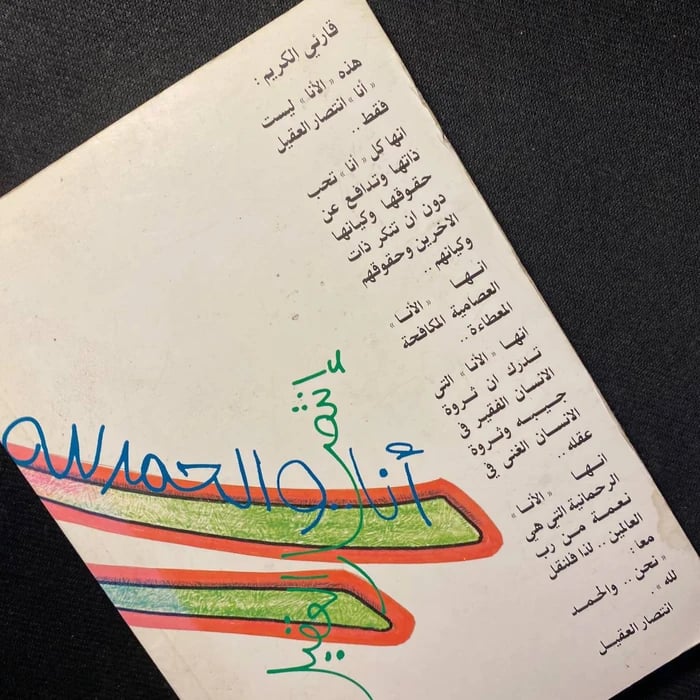 قارئي الكريم :
هذه « الأنا » ليست
« أنا » انتصار العقيل
فقط ..
انها كل « أنا » تحب
ذاتها وتدافع عن
حقوقها وكيانها
دون ان تنكر ذات
الاخرين وحقوقهم
وكيانهم ..
انها « الأنا »
العصامية المكافحة
المعطاءة ..
انها « الأنا » التي
تدرك ان ثروة
الانسان الفقير في
جيبه وثروة
الانسان الغني في
عقله ..
انها « الأنا »
الرحمانية التي هي
نعمة من رب
العالمين .. لذا فلنقل
معا :
« نحن .. والحمد
لله » .
انتصار العقيل
أنا .. والحمد لله
إنتصار العقيل